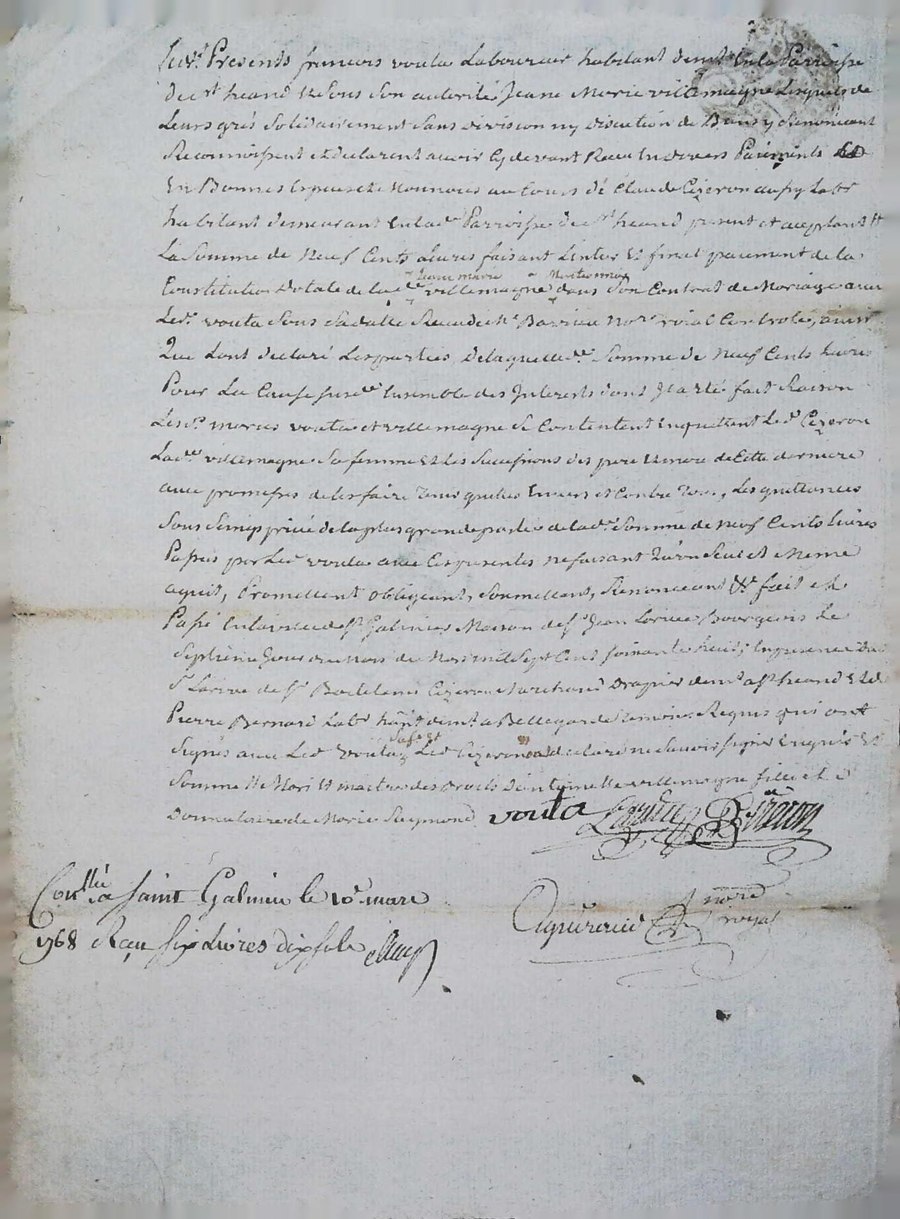 furt. Presents francois vouta Laboureur habitant demt. En la Parroisse
de st heand Et Sous Son autorité Jeane Marie villemagne Lesquels de
Leurs grés Solidairement Sans division ny discution de Biens y Renoncant
Reconnoissent et declarent avoir Cy devant Receu En divers Paiements
En Bonnes Especes Et Monnoies au Cours de Claude Cizeron aussy Labr.
habitant demeurant En lad. Parroisse de st heand present et acceptant
La Somme de Neuf Cents Livres faisant L'entier Et final paiement de la
Constitution Dotale de lad. Jeane marie villemagne dans Son Contrat de Mariage avec
Led. vouta Sous Sa datte Receu de Me Barrieu Nore. roial Controlé, ainsi
Que L'ont declaré Les parties De laquelle d. Somme de Neuf Cents Livres
Pour La Cause susd. Ensemble des Interets dont Il a été fait Raison
Lesd. mariés vouta et villemagne Se Contentent En quittent Led. Cizeron
Lad. villemagne Sa femme Et les Successions des pere Et mere de Cette derniere
avec promesses de les faire Tenir quittes Envers et Contre Tous, Les quittances
Sous Seing privé de la plus grande partie de lad. Somme de Neuf Cents Livres
Passées par Led. vouta avec Ces presentes ne faisant qu'un Seul et Meme
aquit, Promettent obligeant, Soumettent, Renonceant &c. fait et
Passé En la ville de st Galmier Maison de sr. Jean Larive Bourgeois Le
Septieme Jour du Mois de Mars mil Sept Cent soixante huit, En presence Dud.
sr Larive de sr. Bartelemi Cizeron Marchand Drapier demt. a st heand Et de
Pierre Bernard Labr. habt. demt. a Bellegarde Temoins Requis qui ont
Signés avec Led. vouta Led. Cizeron a declaré ne Savoir signer Enquis Et
Sommé Mari Et maitre des Droits D'antoinette villemagne fille et
Donnataire de Marie Reymond vouta Larive Cizeron
Conllé a Saint Galmier le 10e. mars
1768 Reçu six Livres dix sols
nore. royal